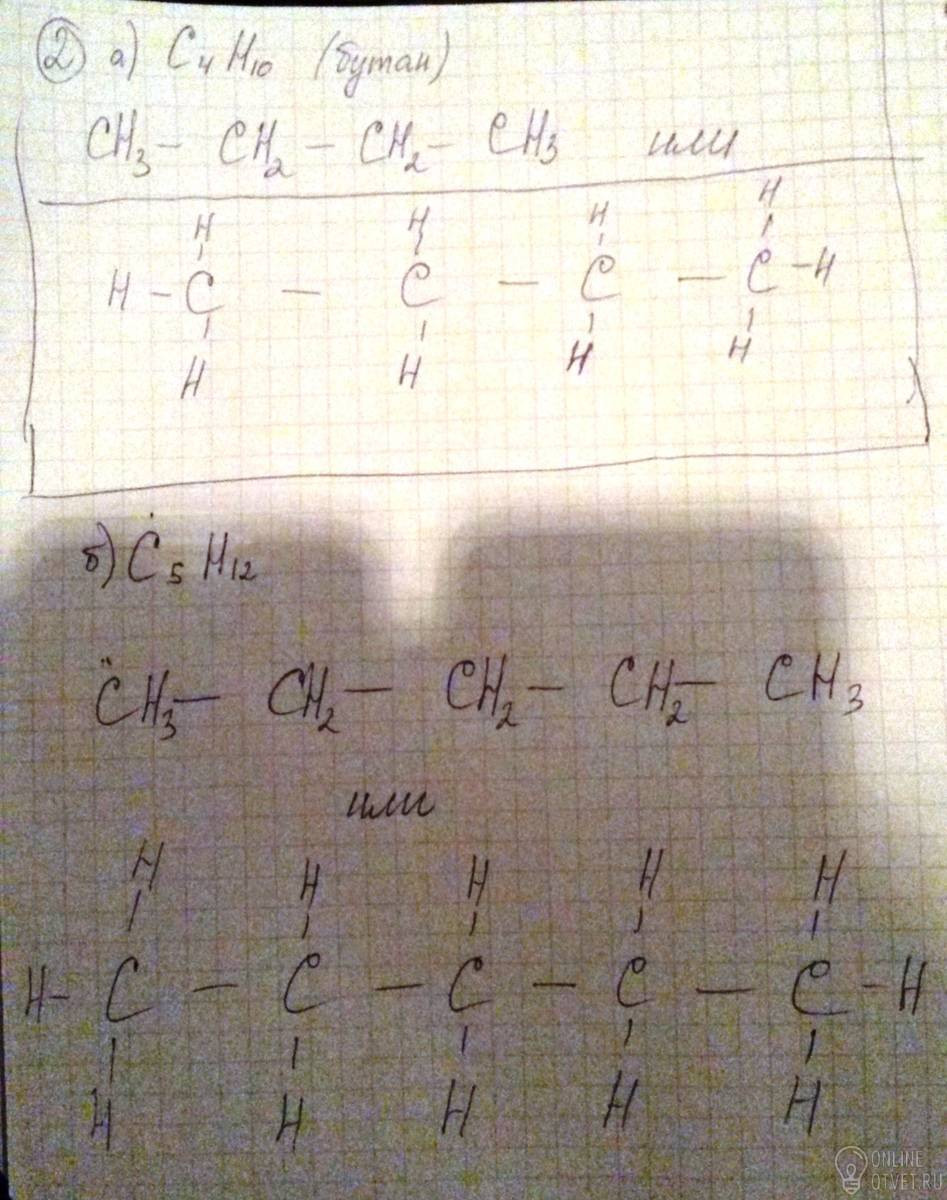 2 а) C4H10 (бутан)
CH3 – CH2 – CH2 – CH3 или
H H H H
H – C – C – C – C – H
H H H H
б) C5H12
CH3 – CH2 – CH2 – CH2 – CH3
или
H H H H H
H – C – C – C – C – C – H
H H H H H
ONLINE
OTVET.RU